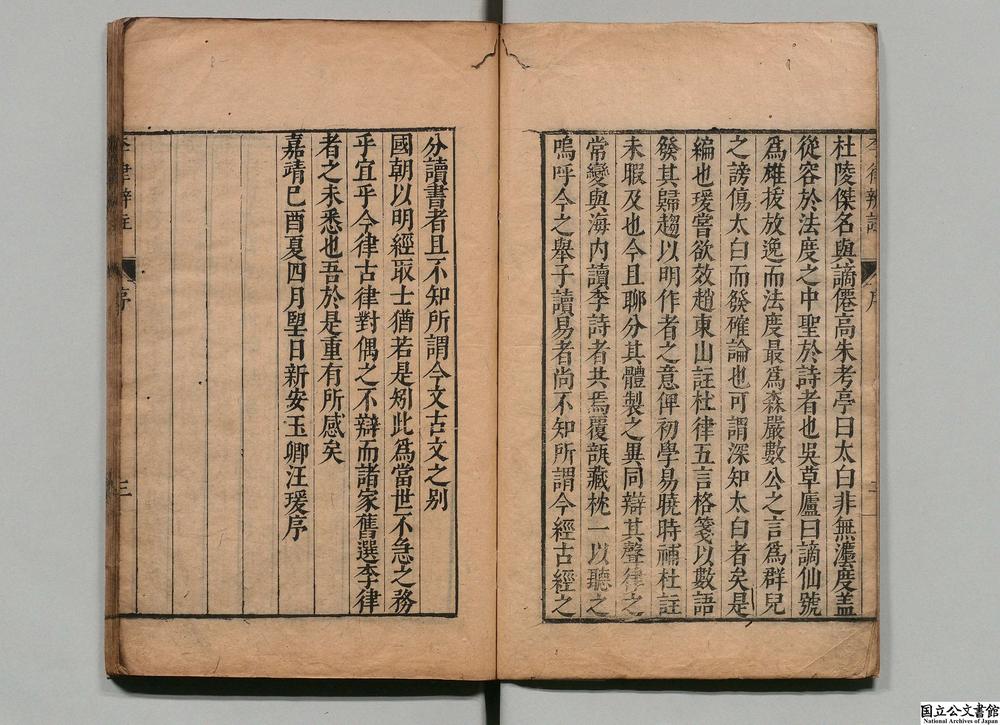 杜陵傑名與謫僊高朱考亭曰太白非無灋度蓋
從容於法度之中聖於詩者也吳草廬曰謫仙號
爲雄拔放逸而法度最爲森嚴數公之言爲群兒
之謗傷太白而發確論也可謂深知太白者矣是
編也瑗嘗欲效趙東山註杜律五言格箋以數語
發其歸趨以明作者之意俾初學易曉時補杜註
未暇及也今且聊分其體製之異同辯其聲律之
常變與海內讀李詩者共焉覆瓿藏枕一以聽之
嗚呼今之舉子讀易者尚不知所謂今經古經之
李律辨註
序
分讀書者且不知所謂今文古文之别
國朝以明經取士猶若是矧此爲當世不急之務
乎宜乎今律古律對偶之不辯而諸家舊選李律
者之未悉也吾於是重有所感矣
嘉靖己酉夏四月朢日新安玉卿汪瑗序
李律辨註
序
三
国立公文書館
National Archives of Japan